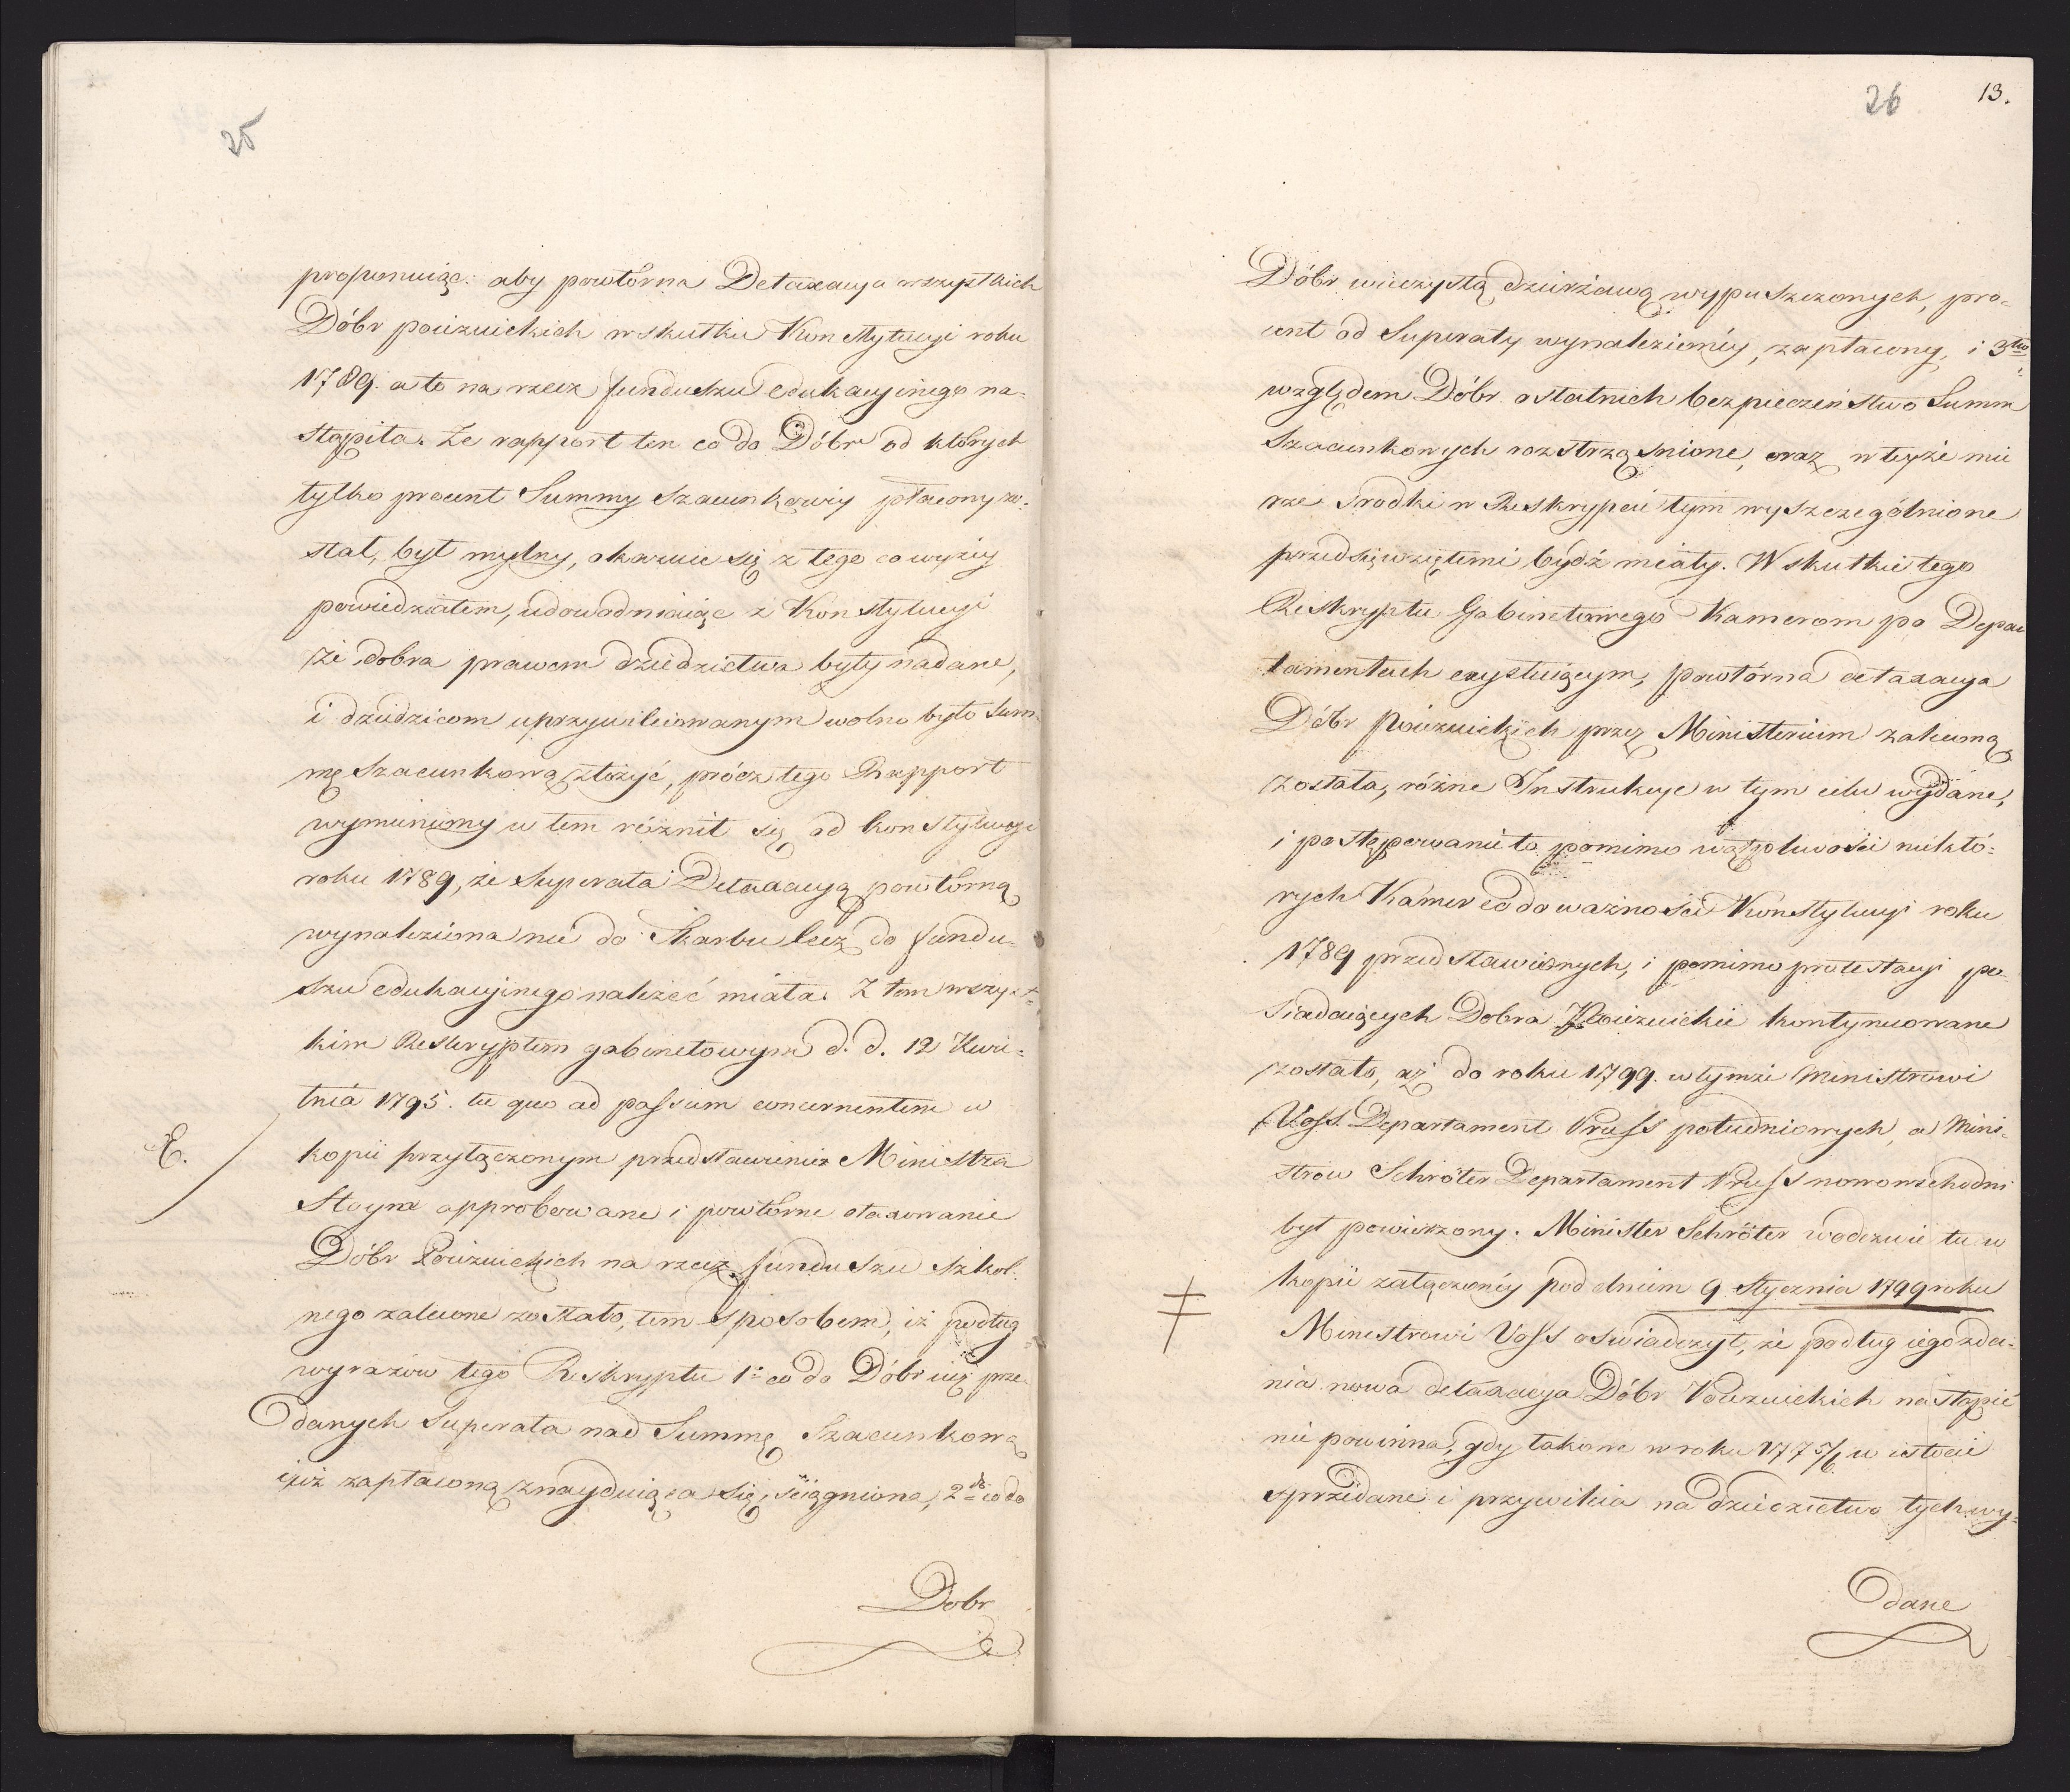 25
proponuiąc: aby powtórna Detaxacya wszystkich
Dóbr poiezuickich w skutku Konstytucyi roku
1789. a to na rzecz funduszu edukacyinego na-
stąpiła. Że rapport ten co do Dóbr od których
tylko procent Summy szacunkowéy płacony zo-
stał, był mylny, okazuie się z tego co wyżéy
powiedziałem, udowodniaiąc z Konstytucyi
że dobra prawem dziedzictwa były nadane,
i dziedzicom uprzywileiowanym wolno było Sum-
mę szacunkową złożyć, prócz tego Rapport
wymieniony w tem różnił się od konstytucyi
roku 1789, że superata Detaxacyą powtórną
wynaleziona nie do Skarbu lecz do fundu-
szu edukacyinego należeć miała. Z tem wszyst-
kim Reskryptem gabinetowym d. d. 12 Kwie-
tnia 1795. tu quo ad passum concernentem w
E.
kopii przyłączonym przedstawienie Ministra
Hoym approbowane i powtórne otaxowanie
Dóbr Poiezuickich na rzecz funduszu szkol-
nego zalecone zostało, tem sposobem, iż podług
wyrazów tego Reskryptu 1o co do Dóbr iuż prze-
danych Superata nad Summę Szacunkową
iuż zapłaconą znayduiąca się, ściągniona, 2do co do
Dobr
26 13.
Dóbr wieczystą dzierżawą wypuszczonych, pro-
cent od Superaty wynalezionéy, zapłacony, i 3tio
względem Dóbr ostatnich bezpieczeństwo Summ
Szacunkowych rozstrząśnione, oraz w teyże mie
rze środki w Reskrypcie tym wyszczególnione
przedsięwziętemi bydź miały. W skutku tego
Reskryptu Gabinetowego Kamerom po Depar
tamentach exystuiącym, powtórna detaxacya
Dóbr Poiezuickich przez Ministerium zaleconą
została, różne Instrukcye w tym celu wydane,
i postępowanie to pomimo wątpliwości niektó-
rych Kamer co do ważności Konstytucyi roku
1789 przedstawionych, i pomimo protestacyi po-
siadaiących Dobra Poiezuickie kontynuowane
zostało, aż do roku 1799. w tymże Ministrowi
Voss Departament Pruss południowych, a Mini-
strow Schröter Departament Pruss nowowschodni
był powierzony. Minister Schröter w odezwie tu w
kopii załączonéy pod dniem 9 Stycznia 1799 roku
Ministrowi Voss oswiadczył, że podług iego zda-
nia nowa detaxacya Dóbr Poiezuickich nastąpić
nie powinna, gdy takowe w roku 1775/6 w istocie
sprzedane i przywileia na dziedzictwo tych wy-
dane